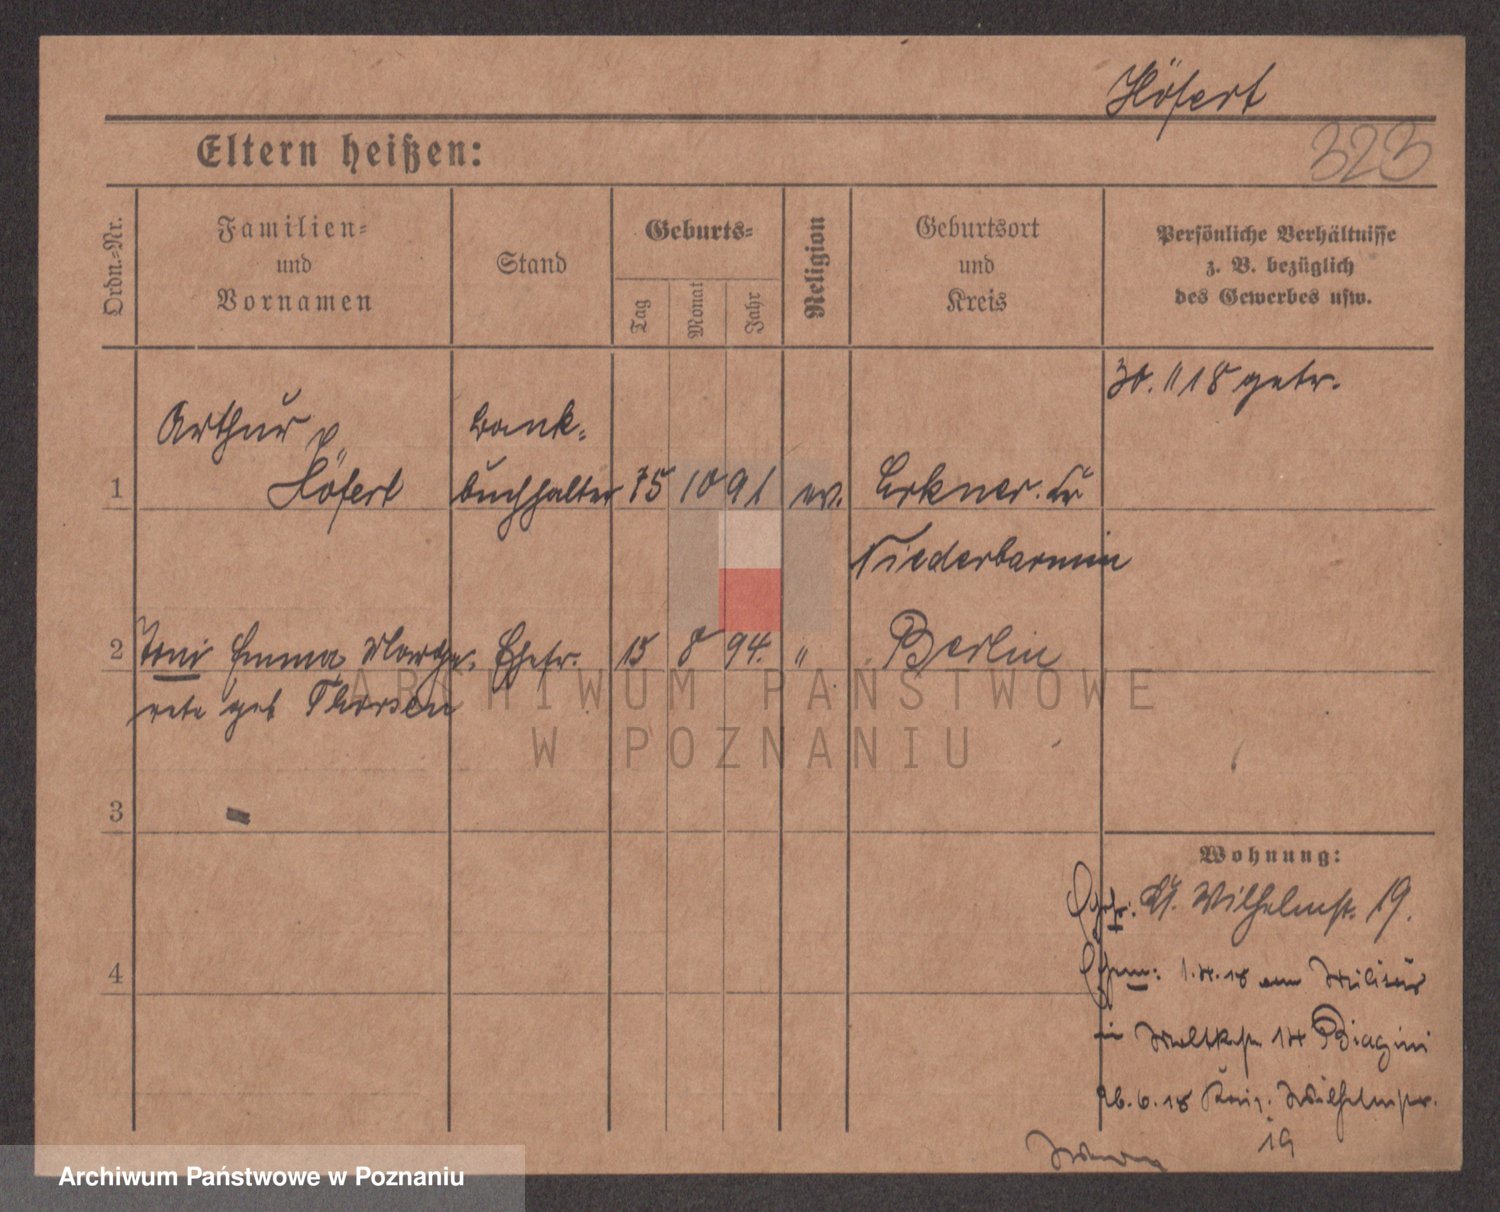 Höfert
323
Eltern heißen:
Ordn.-Nr.
Familien-
und
Vornamen
Stand
Geburts-
Tag
Monat
Jahr
Religion
Geburtsort
und
Kreis
Persönliche Verhältnisse
z. B. bezüglich
des Gewerbes usw.
30. 11 18 getr.
Arthur
Höfert
Bank-
buchhalter
1
10 91 ev.
Erkner. Kr
Niederbarnim
2
Toni Emma Marga- Ehefr. 15 8 94. " Berlin
rete geb Thorsen
3
Wohnung:
Ehefr: Wilhelmst. 19.
4
Ehem: 1.4.18 vom Militär
in Moltkestr 14 Biagini
6.18 König. Wilhelmstr.
19
ARCHIWUM PAŃSTWOWE
W POZNANIU
Archiwum Państwowe w Poznaniu